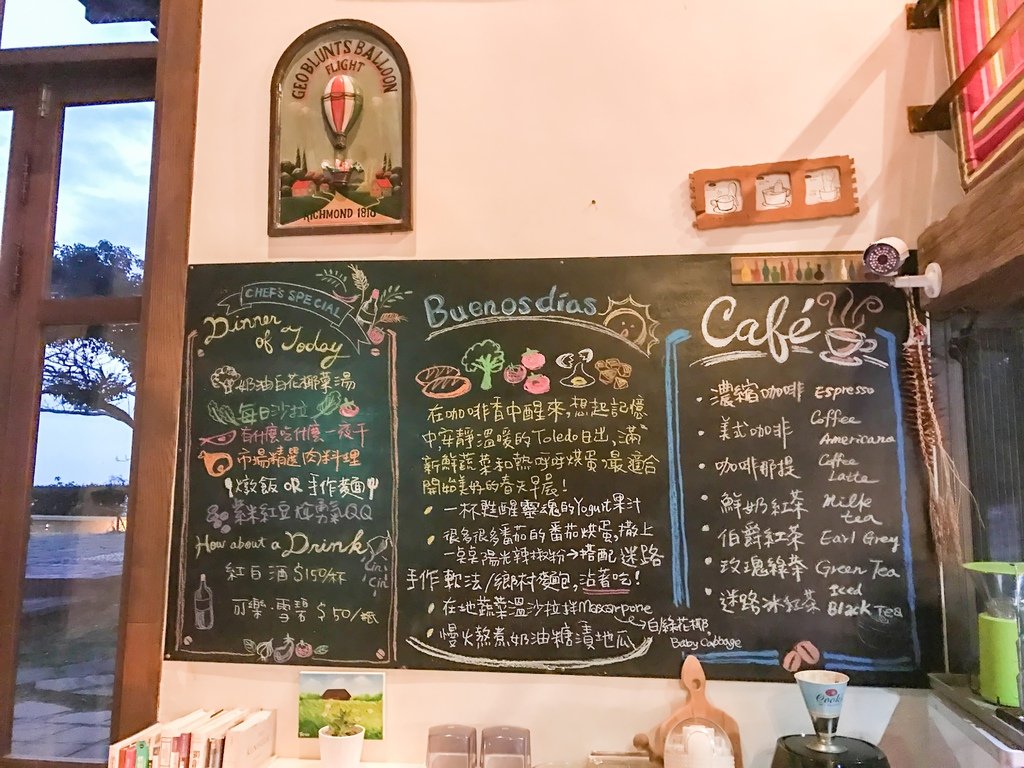 GEO BLUNTS BALLOON
FLIGHT
RICHMOND 1810
CHEF'S SPECIAL
Dinner
of Today
奶油白花椰菜湯
每日沙拉
有什麼吃什麼一夜干
市場精選肉料理
燉飯 OR 手作麵
紫米紅豆
QQ
How about a Drink
紅白酒 $150/杯
可樂 雪碧 $50/瓶
Buenos días
在咖啡香中醒來,想起記憶
中安靜溫暖的Toledo日出,滿
新鮮蔬菜和熱呼呼烘蛋,最適合
開始美好的春天早晨!
一杯甦醒靈魂的Yogurt果汁
很多很多番茄的番茄烘蛋,撒上
一莫莫陽光辣椒粉→搭配 迷路
手作軟法/鄉村麵包,沾著吃!
在地蔬菜溫沙拉拌Mascarpone
白綠花椰
Baby Cabbage
慢火熬煮奶油糖漬地瓜
Café
濃縮咖啡 Espresso
美式咖啡 Coffee Americana
咖啡那提 Coffee Latte
鮮奶紅茶 Milk tea
伯爵紅茶 Earl Grey
玫瑰綠茶 Green Tea
迷路冰紅茶 Iced Black Tea